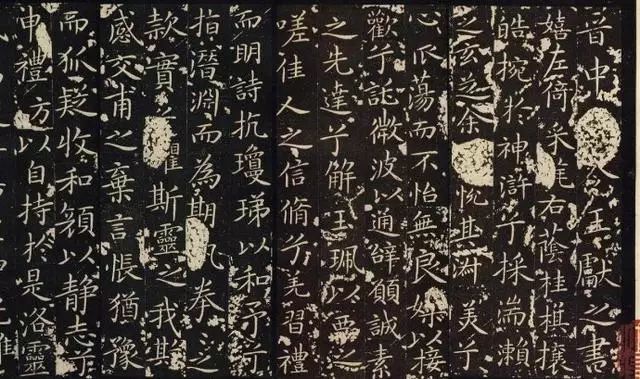 晋中王獻之書
嬉左倚采旄右蔭桂棋攘
皓捥於神滸兮採湍瀨
之玄芝余悅其淑美兮
心蕩而不怡無良媒以接
歡兮託微波以通辞願誠素
之先達兮解玉珮以要之
嗟佳人之信脩兮羌習禮
而明詩抗瓊珶以和予兮
指潛淵而為期執拳之
款實兮懼斯靈之我欺
感交甫之棄言悵猶豫
而狐疑收和顏以静志兮
申禮防以自持於是洛靈